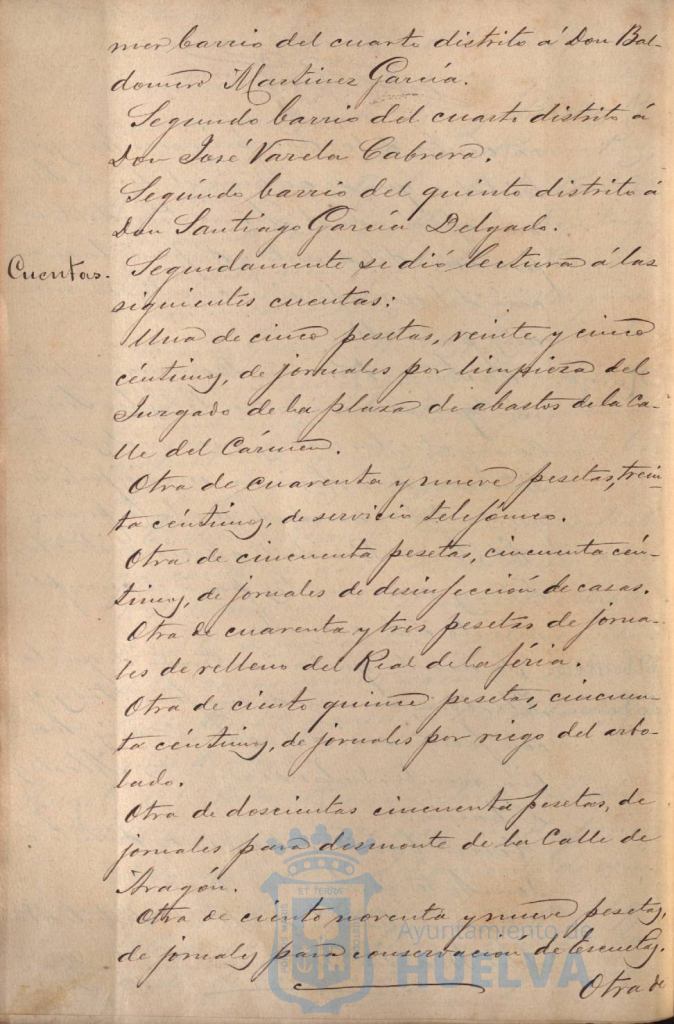 mer barrio del cuarto distrito á Don Bal-
domero Martinez García.
Segundo barrio del cuarto distrito á
Don José Varela Cabrera.
Segundo barrio del quinto distrito á
Don Santiago García Delgado.
Cuentas. Seguidamente se dió lectura á las
siguientes cuentas:
Una de cinco pesetas, veinte y cinco
céntimos, de jornales por limpieza del
Juzgado de la plaza de abastos de la Ca-
lle del Cármen.
Otra de cuarenta y nueve pesetas, trein-
ta céntimos, de servicio telefónico.
Otra de cincuenta pesetas, cincuenta cén-
timos, de jornales de desinfección de casas.
Otra de cuarenta y tres pesetas de jorna-
les de relleno del Real de la féria.
Otra de ciento quince pesetas, cincuen-
ta céntimos, de jornales por riego del arbo-
lado.
Otra de doscientas cincuenta pesetas, de
jornales para desmonte de la Calle de
Aragón.
Otra de ciento noventa y nueve pesetas,
de jornales para conservación de Escuelas.
Otra de
ET TERRÆ
Ayuntamiento de
HUELVA